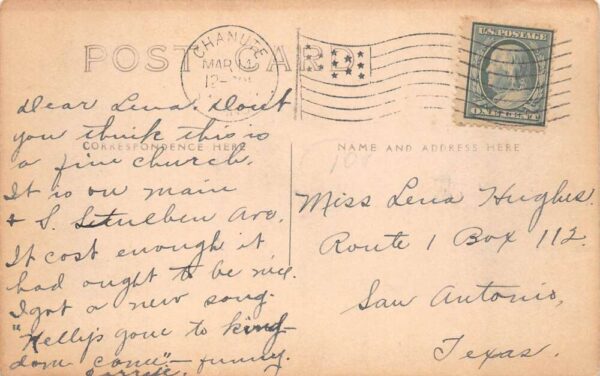 POST CARD
CHANUTE
MAR 14
12-
U.S. POSTAGE
ONE CENT
CORRESPONDENCE HERE
NAME AND ADDRESS HERE
Dear Lena. Don't
you think this is
a fine church.
It is on main
+ S. Steulben Ave.
It cost enough it
had ought to be nice.
I got a new song.
"Kelly's gone to king-
dom come" – funny.
Miss Lena Hughes.
Route 1 Box 112.
San Antonio,
Texas.